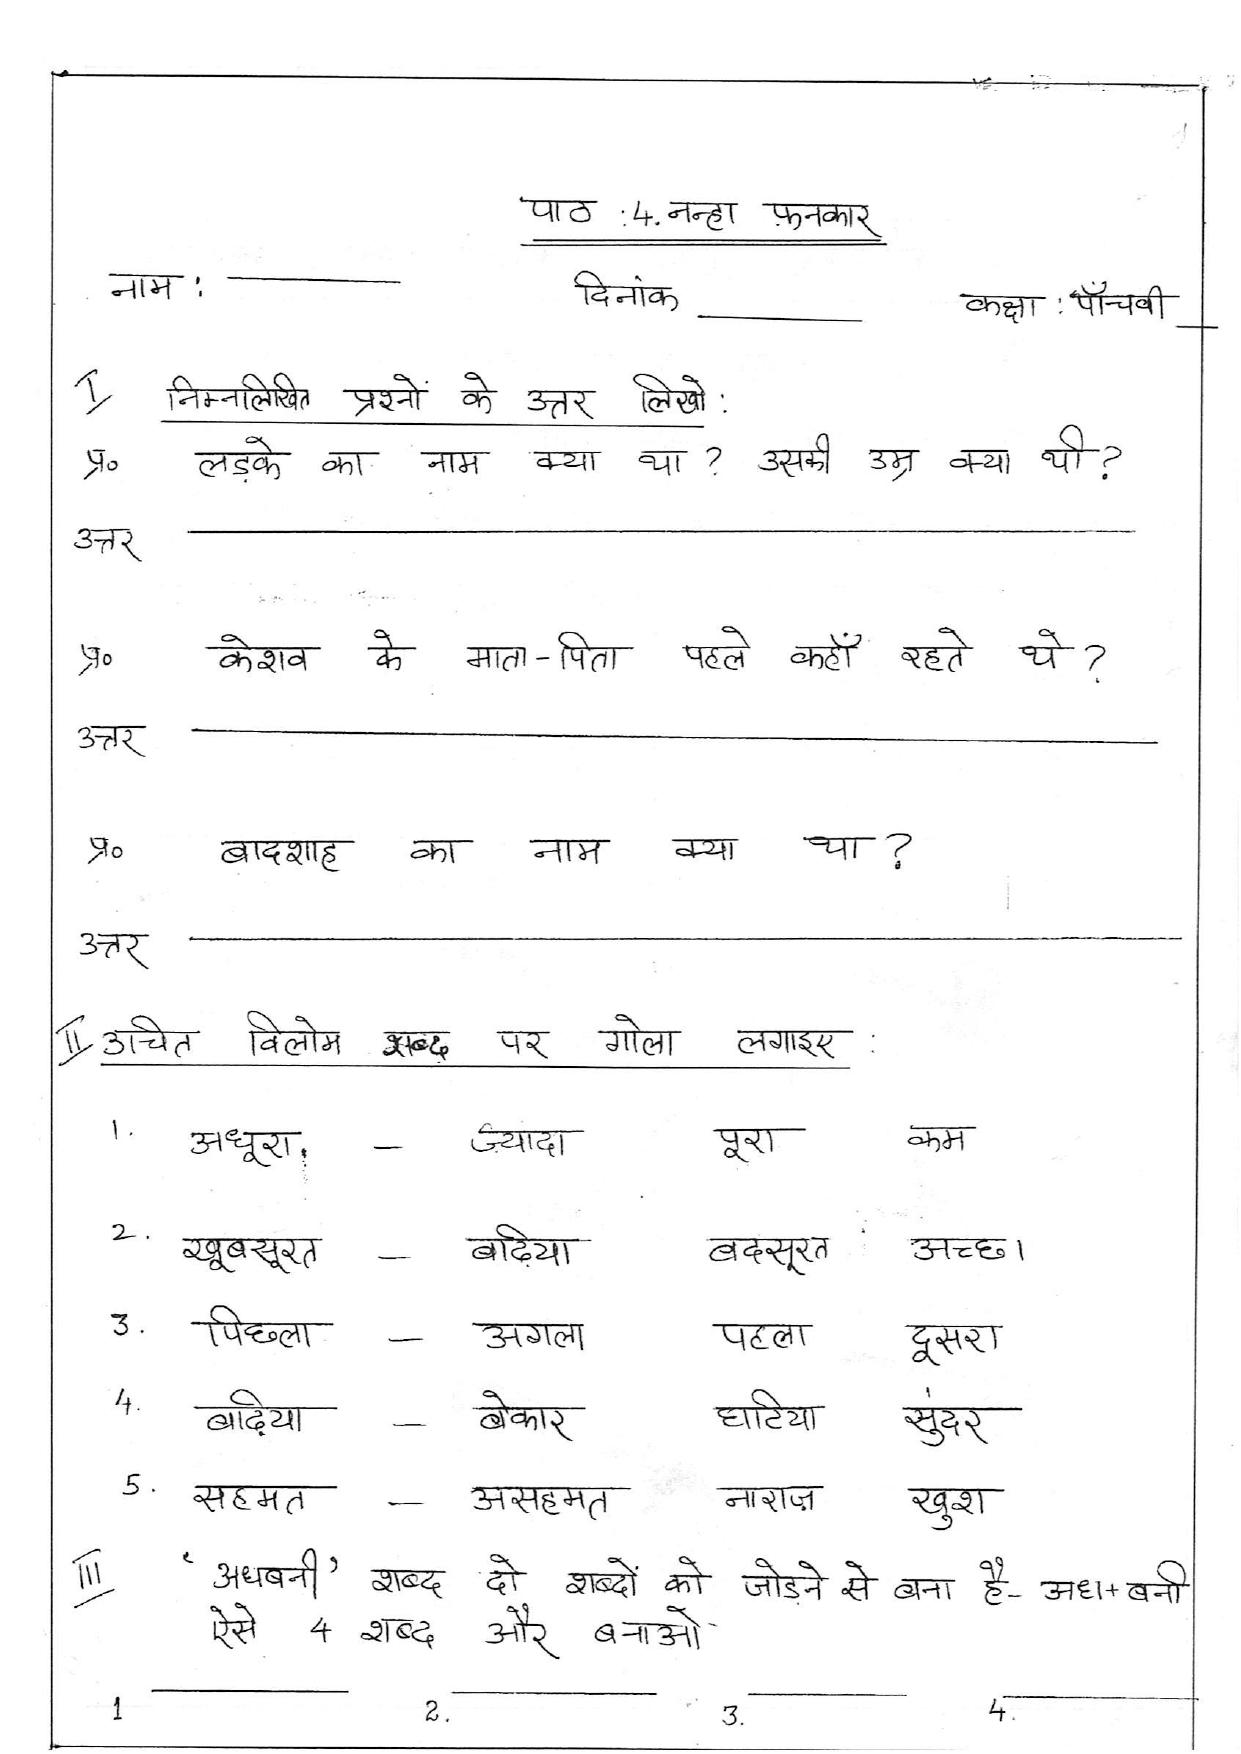 पाठ :4. नन्हा फ़नकार
नाम : ________ दिनांक ________ कक्षा : पाँचवी _
I निम्नलिखित प्रश्नों के उत्तर लिखो :
प्र० लड़के का नाम क्या था ? उसकी उम्र क्या थी ?
उत्तर ________
प्र० केशव के माता-पिता पहले कहाँ रहते थे ?
उत्तर ________
प्र० बादशाह का नाम क्या था ?
उत्तर ________
II उचित विलोम शब्द पर गोला लगाइए :
1. अधूरा - ज़्यादा पूरा कम
2. खूबसूरत - बढ़िया बदसूरत अच्छा
3. पिछला - अगला पहला दूसरा
4. बढ़िया - बेकार घटिया सुंदर
5. सहमत - असहमत नाराज़ खुश
III 'अधबनी' शब्द दो शब्दों को जोड़ने से बना है- अध+बनी
ऐसे 4 शब्द और बनाओ-
1 ________ 2. ________ 3. ________ 4. ________